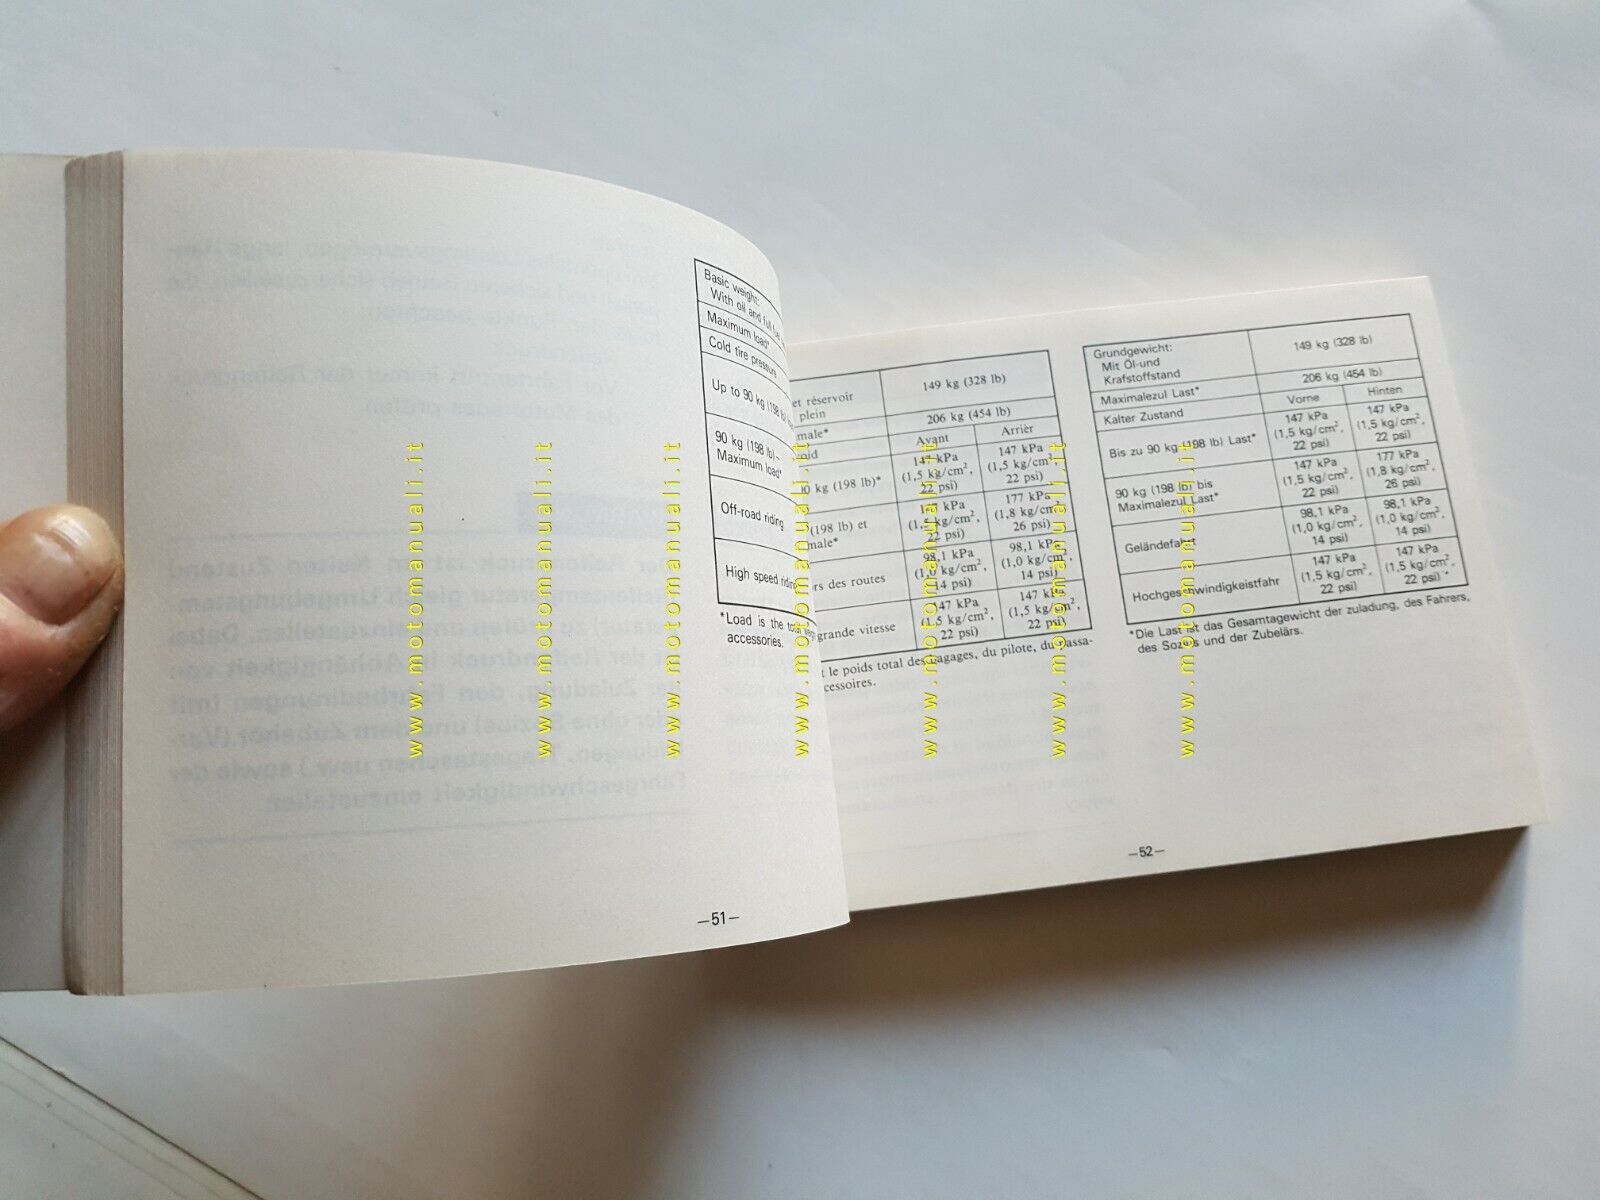 Basic weight:
With oil and full
Maximum load*
Cold tire pressure
Up to 90 kg (198 lb)
90 kg (198 lb)~
Maximum load*
Off-road riding
High speed riding
*Load is the total
accessories.
—51—
et réservoir
plein
149 kg (328 lb)
male*
206 kg (454 lb)
oid
Avant
Arrièr
90 kg (198 lb)*
147 kPa
(1,5 kg/cm²,
22 psi)
147 kPa
(1,5 kg/cm²,
22 psi)
(198 lb) et
male*
147 kPa
(1,5 kg/cm²,
22 psi)
177 kPa
(1,8 kg/cm²,
26 psi)
ors des routes
98,1 kPa
(1,0 kg/cm²,
14 psi)
98,1 kPa
(1,0 kg/cm²,
14 psi)
grande vitesse
147 kPa
(1,5 kg/cm²,
22 psi)
147 kPa
(1,5 kg/cm²,
22 psi)
t le poids total des bagages, du pilote, du passa-
ccessoires.
Grundgewicht:
Mit Öl-und
Krafstoffstand
149 kg (328 lb)
Maximalezul Last*
206 kg (454 lb)
Kalter Zustand
Vorne
Hinten
Bis zu 90 kg (198 lb) Last*
147 kPa
(1,5 kg/cm²,
22 psi)
147 kPa
(1,5 kg/cm²,
22 psi)
90 kg (198 lb) bis
Maximalezul Last*
147 kPa
(1,5 kg/cm²,
22 psi)
177 kPa
(1,8 kg/cm²,
26 psi)
Geländefahrt
98,1 kPa
(1,0 kg/cm²,
14 psi)
98,1 kPa
(1,0 kg/cm²,
14 psi)
Hochgeschwindigkeistfahr
147 kPa
(1,5 kg/cm²,
22 psi)
147 kPa
(1,5 kg/cm²,
22 psi)
*Die Last ist das Gesamtagewicht der zuladung, des Fahrers,
des Sozius und der Zubelärs.
—52—
www.motomanuali.it
www.motomanuali.it
www.motomanuali.it
www.motomanuali.it
www.motomanuali.it
www.motomanuali.it
www.motomanuali.it